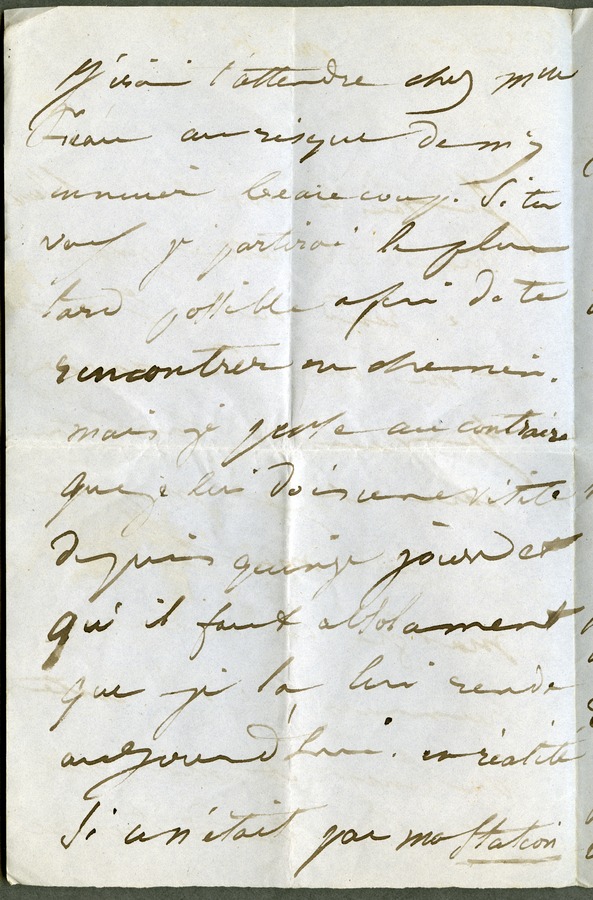 J'irai t'attendre chez mme
au risque de m'y
ennuier beaucoup. Si tu
veux je partirai le plus
tard possible afin de te
rencontrer en chemin.
mais je pense au contraire
que je lui dois une visite
depuis quinze jours et
qu'il faut absolument
que je la lui rende
aujourd'hui. en réalité
Si ce n'était pas ma station